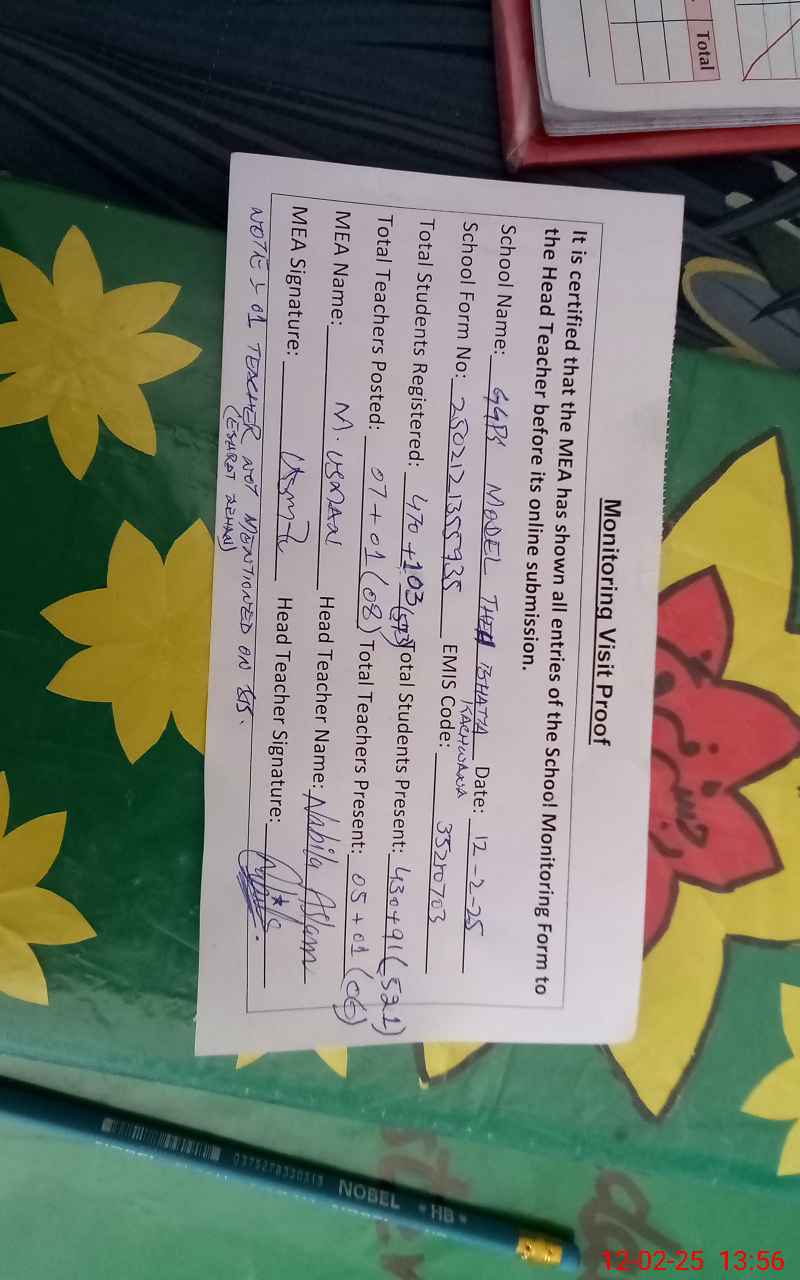 Monitoring Visit Proof
It is certified that the MEA has shown all entries of the School Monitoring Form to
the Head Teacher before its online submission.
School Name: GGPS MODEL THEH BHATYA KACHWANA Date: 12-2-25
School Form No: 2502121355935 EMIS Code: 35210703
Total Students Registered: 470+103(573) Total Students Present: 430+91(521)
Total Teachers Posted: 07+01(08) Total Teachers Present: 05+01(06)
MEA Name: M. USMAN Head Teacher Name: Nabila Aslam
MEA Signature: Head Teacher Signature:
NOTE :- 01 TEACHER NOT MENTIONED ON SIS.
(ESHRAT REHAN)
Total
0375278330313 NOBEL *HB*
12-02-25 13:56